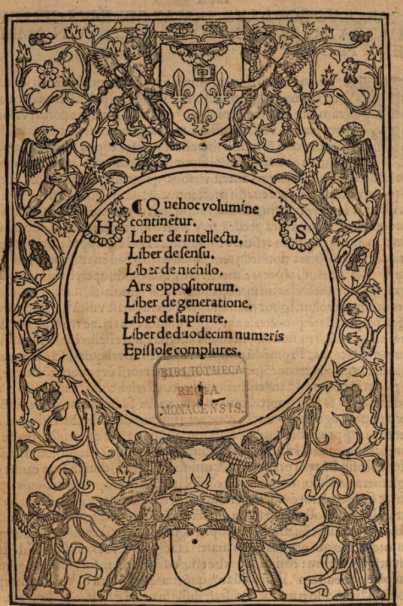 H S
¶ Quehoc volumine
continētur.
Liber de intellectu.
Liber de sensu.
Liber de nichilo.
Ars oppositorum.
Liber de generatione.
Liber de sapiente.
Liber de duodecim numeris
Epistole complures.
BIBLIOTHECA
REGIA
MONACENSIS.